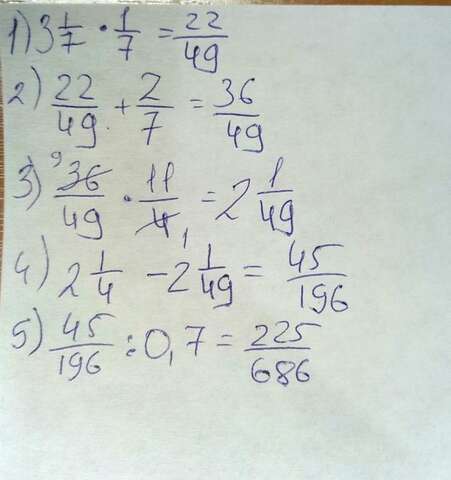 1) 3 1/7 · 1/7 = 22/49
2) 22/49 + 2/7 = 36/49
3) 9 36/49 · 11/4 1 = 2 1/49
4) 2 1/4 - 2 1/49 = 45/196
5) 45/196 : 0,7 = 225/686